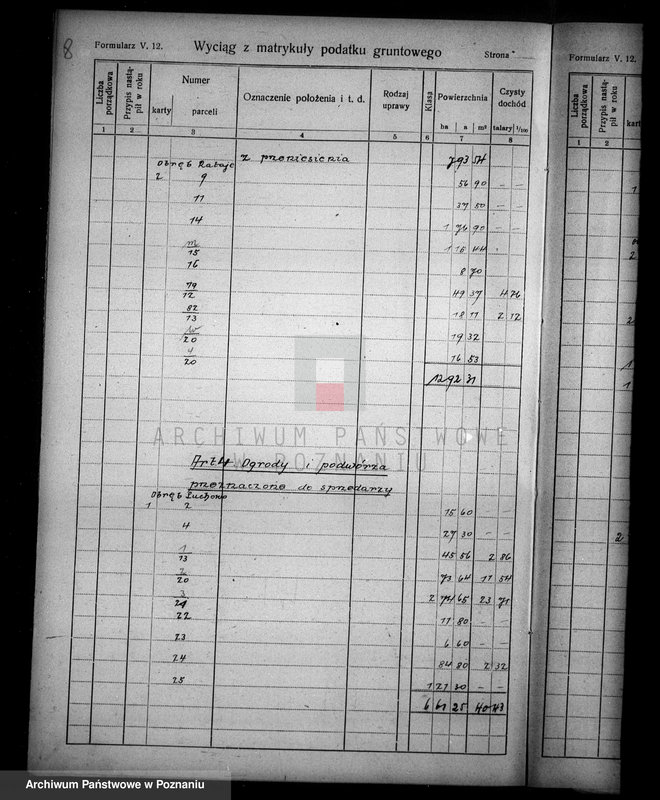 8
Formularz V. 12.
Wyciąg z matrykuły podatku gruntowego
Strona
Liczba porządkowa
Przypis nastąpił w roku
Numer
karty
parceli
Oznaczenie położenia i t. d.
Rodzaj uprawy
Klasa
Powierzchnia
ha a m²
Czysty dochód
talary 1/100
1 2 3 4 5 6 7 8
z przeniesienia 7 93 54
Obręb Rataje
2 9 56 90 — —
11 37 50 — —
14 1 76 90 — —
15 1 15 44
16 8 70
79/12 49 37 4 76
82/13 18 11 2 12
20 19 32
4/20 16 53
12 92 31
ARCHIWUM PAŃSTWOWE
W POZNANIU
Art 4. Ogrody i podwórza
przeznaczone do sprzedarzy
Obręb
1 2 15 60 — —
4 27 30 — —
1/13 45 56 2 86
2/20 73 64 11 54
3/21 2 74 65 23 71
22 11 80 — —
23 6 60 — —
24 84 80 2 32
25 1 21 30 — —
6 61 25 40 43
Formularz V. 12.
Liczba porządkowa
Przypis nastąpił w roku
kart
1 2
1
2
2
1
1
2
Archiwum Państwowe w Poznaniu